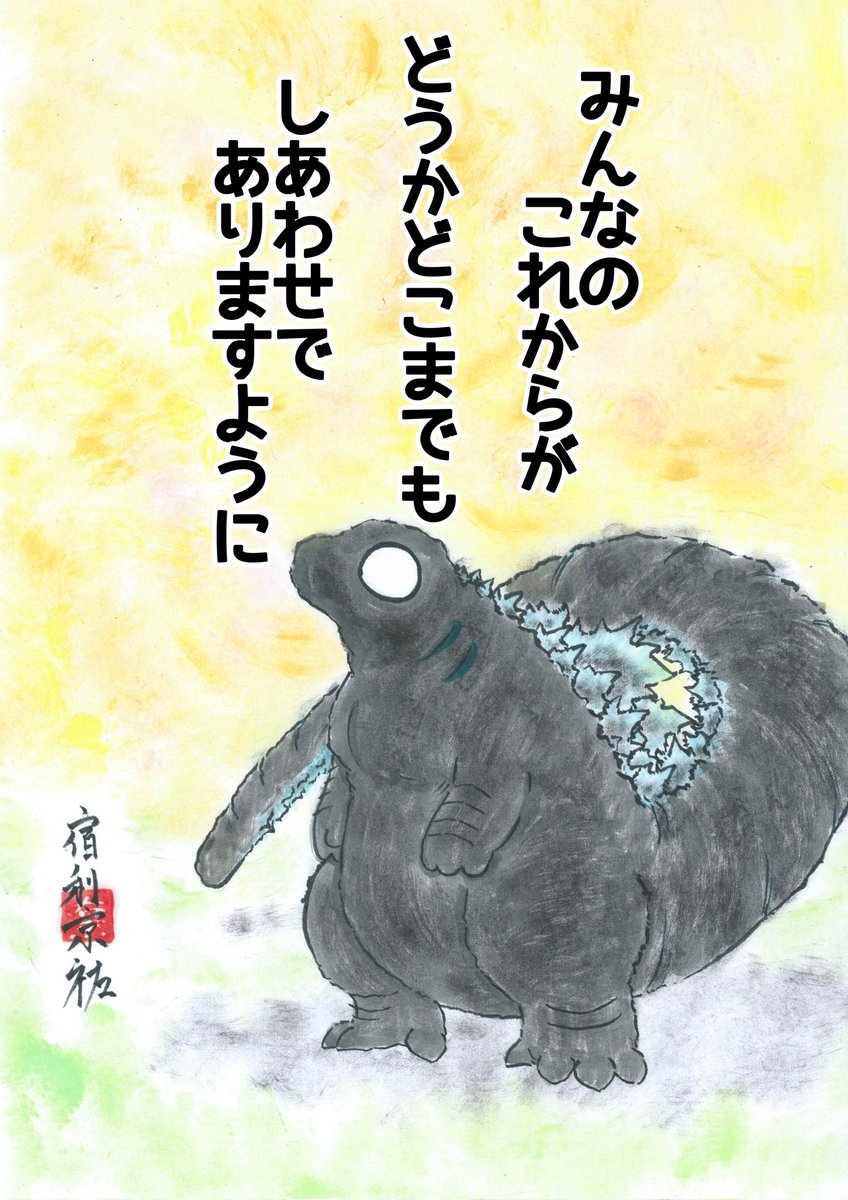 みんなの
これからが
どうかどこまでも
しあわせで
ありますように
宿利京祐